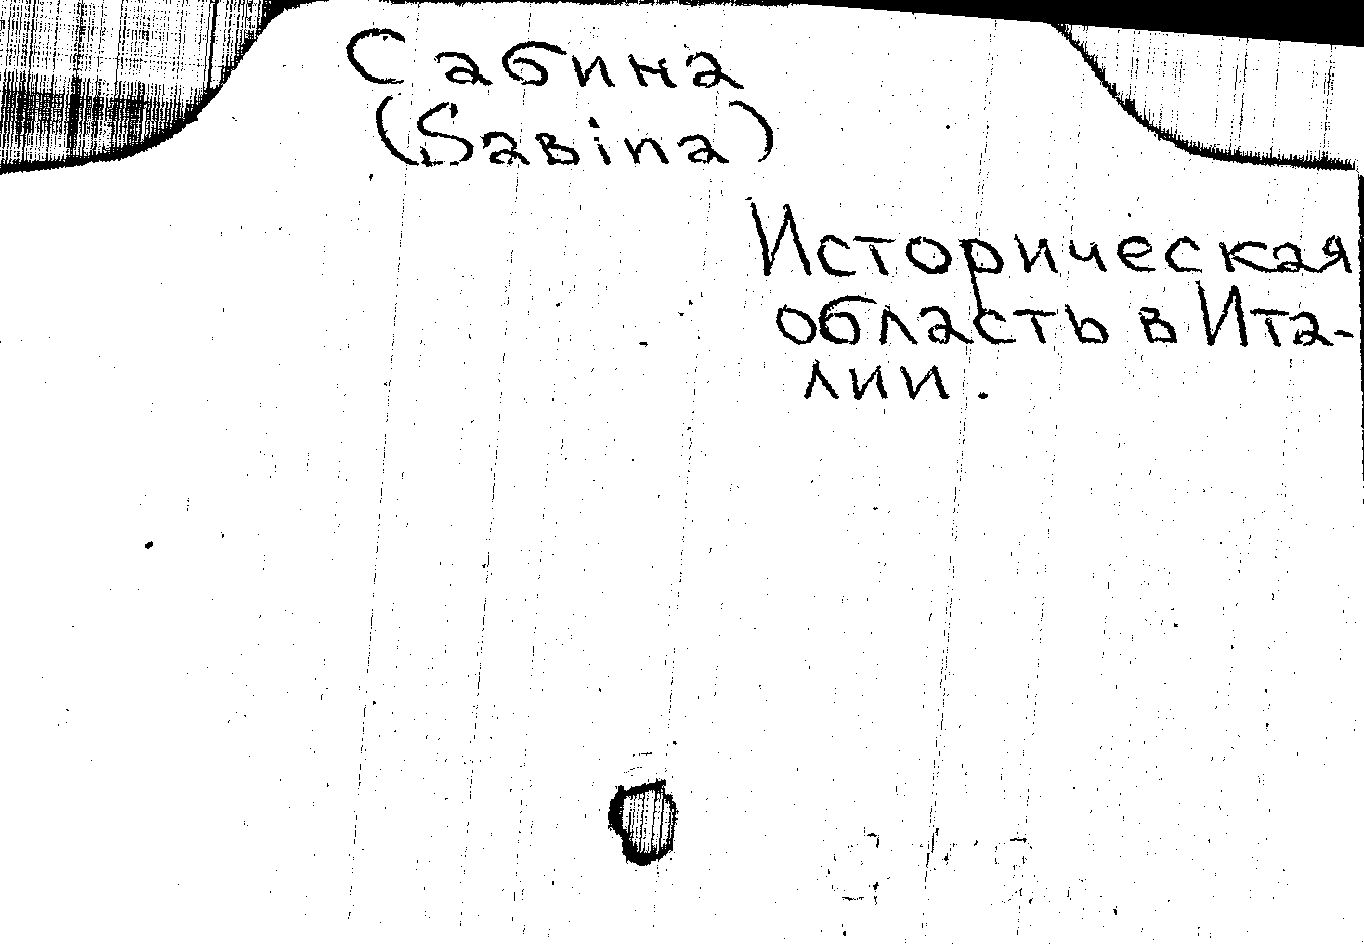 Сабина
(Sabina)
Историческая
область в Ита-
лии.